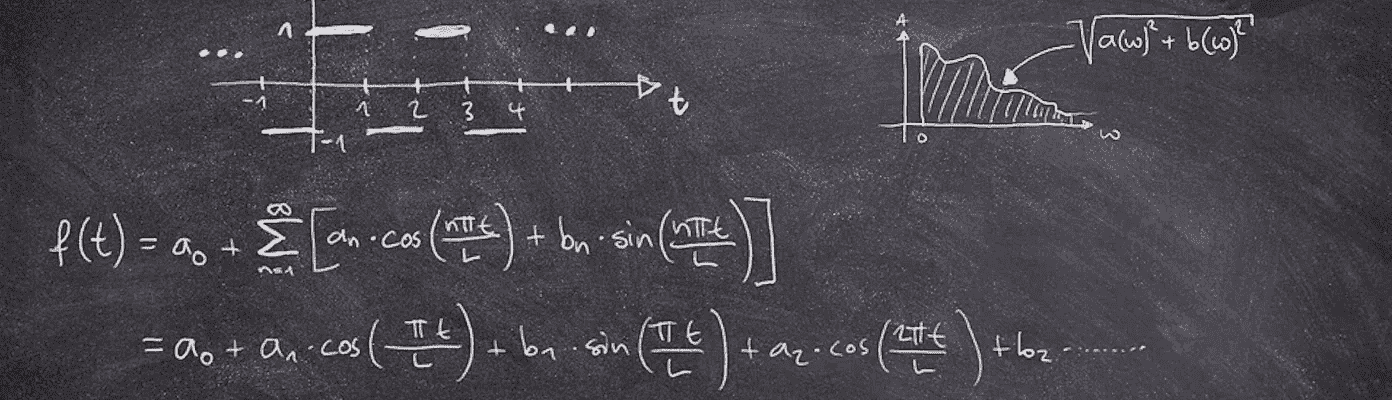 1
...
...
-1 1 2 3 4
t
-1
A
√(a(ω)² + b(ω)²)
0
ω
f(t) = a₀ + ∑ₙ₌₁^∞ [aₙ · cos(nπt/L) + bₙ · sin(nπt/L)]
= a₀ + a₁ · cos(πt/L) + b₁ · sin(πt/L) + a₂ · cos(2πt/L) + b₂ ........